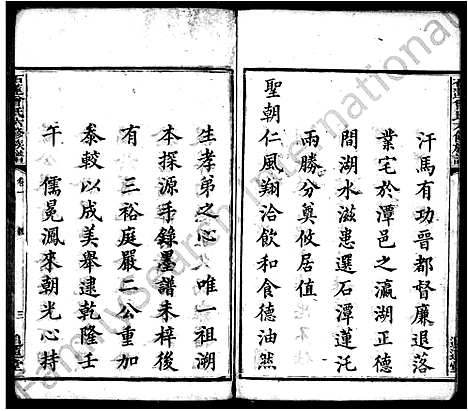 汗馬有功晉都督廉退落
業宅於潭邑之瀛湖正德
間湖水滋患選石潭蓮沱
兩勝分奠攸居值
聖朝仁風翔洽飲和食德油然
生孝弟之心唯一祖溯
本探源手錄墨譜未梓後
有三裕庭嚴二公重加
泰較以成美舉逮乾隆壬
午儒晃渢來朝光心持
石蓮曾氏六修族譜
卷一
三
FamilySearch International